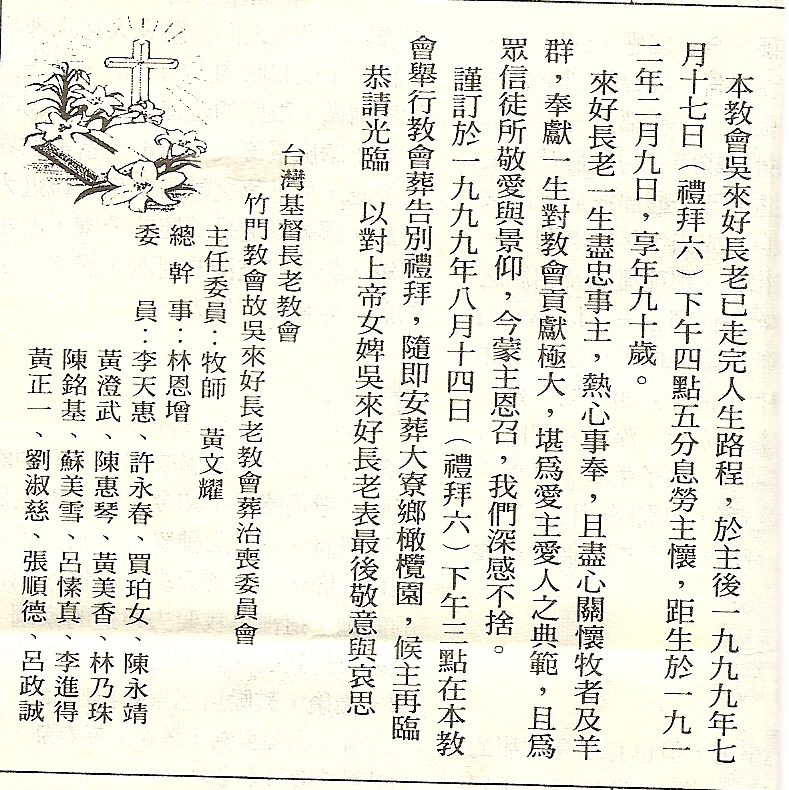 本教會吳來好長老已走完人生路程，於主後一九九九年七
月十七日（禮拜六）下午四點五分息勞主懷，距生於一九一
二年二月九日，享年九十歲。
來好長老一生盡忠事主，熱心事奉，且盡心關懷牧者及羊
群，奉獻一生對教會貢獻極大，堪為愛主愛人之典範，且為
眾信徒所敬愛與景仰，今蒙主恩召，我們深感不捨。
謹訂於一九九九年八月十四日（禮拜六）下午三點在本教
會舉行教會葬告別禮拜，隨即安葬大寮鄉橄欖園，候主再臨
恭請光臨　以對上帝女婢吳來好長老表最後敬意與哀思
台灣基督長老教會
竹門教會故吳來好長老教會葬治喪委員會
主任委員：牧師　黃文耀
總幹事：林恩增
委　員：李天惠、許永春、買珀女、陳永靖
黃澄武、陳惠琴、黃美香、林乃珠
陳銘基、蘇美雪、呂愫真、李進得
黃正一、劉淑慈、張順德、呂政誠